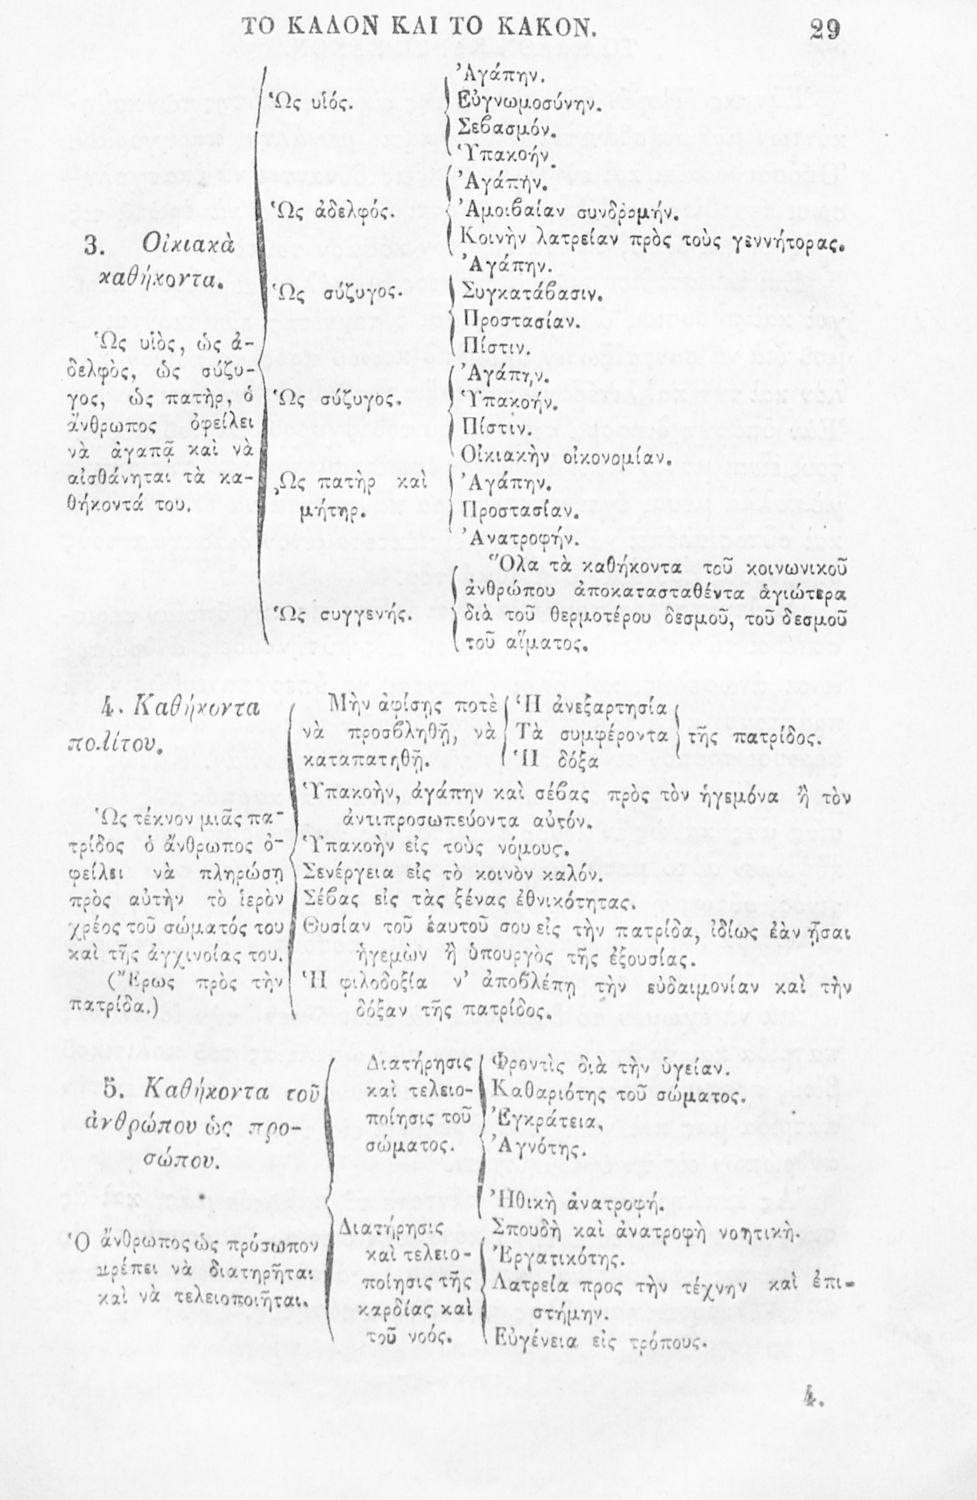 ΤΟ ΚΑΛΟΝ ΚΑΙ ΤΟ ΚΑΚΟΝ. 29
3. Οἰκιακὰ
καθήκοντα.
Ὡς υἱὸς, ὡς ἀ-
δελφὸς, ὡς σύζυ-
γος, ὡς πατὴρ, ὁ
ἄνθρωπος ὀφείλει
νὰ ἀγαπᾷ καὶ νὰ
αἰσθάνηται τὰ κα-
θήκοντά του.
Ὡς υἱός.
Ἀγάπην.
Εὐγνωμοσύνην.
Σεβασμόν.
Ὑπακοήν.
Ὡς ἀδελφός.
Ἀγάπην.
Ἀμοιβαίαν συνδρομήν.
Κοινὴν λατρείαν πρὸς τοὺς γεννήτορας.
Ὡς σύζυγος.
Ἀγάπην.
Συγκατάβασιν.
Προστασίαν.
Πίστιν.
Ὡς σύζυγος.
Ἀγάπην.
Ὑπακοήν.
Πίστιν.
Οἰκιακὴν οἰκονομίαν.
Ὡς πατὴρ καὶ
μήτηρ.
Ἀγάπην.
Προστασίαν.
Ἀνατροφήν.
Ὡς συγγενής.
Ὅλα τὰ καθήκοντα τοῦ κοινωνικοῦ
ἀνθρώπου ἀποκατασταθέντα ἁγιώτερα
διὰ τοῦ θερμοτέρου δεσμοῦ, τοῦ δεσμοῦ
τοῦ αἵματος.
4. Καθήκοντα
πολίτου.
Ὡς τέκνον μιᾶς πα-
τρίδος ὁ ἄνθρωπος ὀ-
φείλει νὰ πληρώσῃ
πρὸς αὐτὴν τὸ ἱερὸν
χρέος τοῦ σώματός του
καὶ τῆς ἀγχινοίας του.
(Ἔρως πρὸς τὴν
πατρίδα.)
Μὴν ἀφίσῃς ποτὲ
νὰ προσβληθῇ, νὰ
καταπατηθῇ.
Ἡ ἀνεξαρτησία
Τὰ συμφέροντα
Ἡ δόξα
τῆς πατρίδος.
Ὑπακοὴν, ἀγάπην καὶ σέβας πρὸς τὸν ἡγεμόνα ἢ τὸν
ἀντιπροσωπεύοντα αὐτόν.
Ὑπακοὴν εἰς τοὺς νόμους.
Σενέργεια εἰς τὸ κοινὸν καλόν.
Σέβας εἰς τὰς ξένας ἐθνικότητας.
Θυσίαν τοῦ ἑαυτοῦ σου εἰς τὴν πατρίδα, ἰδίως ἐὰν ἦσαι
ἡγεμὼν ἢ ὑπουργὸς τῆς ἐξουσίας.
Ἡ φιλοδοξία ν' ἀποβλέπῃ τὴν εὐδαιμονίαν καὶ τὴν
δόξαν τῆς πατρίδος.
5. Καθήκοντα τοῦ
ἀνθρώπου ὡς προ-
σώπου.
Ὁ ἄνθρωπος ὡς πρόσωπον
πρέπει νὰ διατηρῆται
καὶ νὰ τελειοποιῆται.
Διατήρησις
καὶ τελειο-
ποίησις τοῦ
σώματος.
Φροντὶς διὰ τὴν ὑγείαν.
Καθαριότης τοῦ σώματος.
Ἐγκράτεια.
Ἁγνότης.
Διατήρησις
καὶ τελειο-
ποίησις τῆς
καρδίας καὶ
τοῦ νοός.
Ἠθικὴ ἀνατροφή.
Σπουδὴ καὶ ἀνατροφὴ νοητική.
Ἐργατικότης.
Λατρεία προς τὴν τέχνην καὶ ἐπι-
στήμην.
Εὐγένεια εἰς τρόπους.
4.